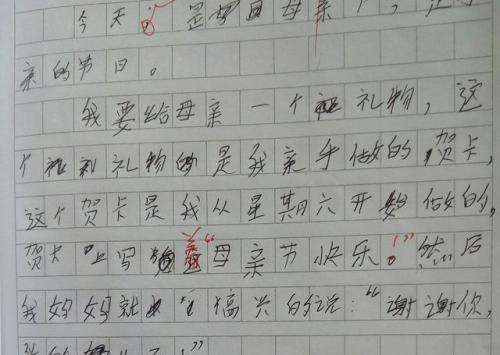 今天，是母亲节，
亲的节日。
我要给母亲一个礼物，这
个礼物的是我亲手做的贺卡，
这个贺卡是我从星期六开做的，
贺卡上写着“母亲节快乐！”然后
我妈妈就搞兴的说：“谢谢你，